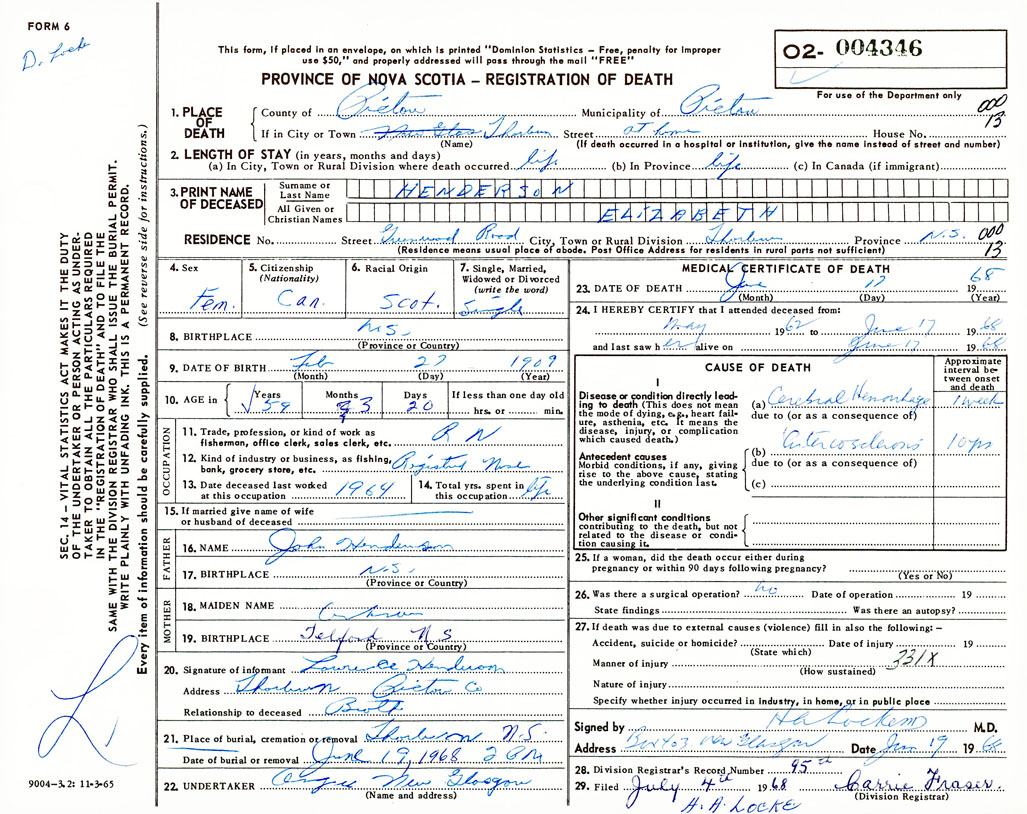 FORM 6
D. Locke
This form, if placed in an envelope, on which is printed "Dominion Statistics – Free, penalty for improper
use $50," and properly addressed will pass through the mail "FREE"
PROVINCE OF NOVA SCOTIA – REGISTRATION OF DEATH
O2- 004346
For use of the Department only
000
13
1. PLACE OF DEATH
County of Pictou Municipality of Pictou
If in City or Town Thorburn Street at home House No.
(Name) (If death occurred in a hospital or institution, give the name instead of street and number)
2. LENGTH OF STAY (in years, months and days)
(a) In City, Town or Rural Division where death occurred life (b) In Province life (c) In Canada (if immigrant)
3. PRINT NAME OF DECEASED
Surname or Last Name HENDERSON
All Given or Christian Names ELIZABETH
RESIDENCE No. Street Greenwood Road City, Town or Rural Division Thorburn Province N.S. 000
13
(Residence means usual place of abode. Post Office Address for residents in rural parts not sufficient)
4. Sex Fem.
5. Citizenship (Nationality) Can.
6. Racial Origin Scot.
7. Single, Married, Widowed or Divorced (write the word) Single
8. BIRTHPLACE N.S.
(Province or Country)
9. DATE OF BIRTH Feb 27 1909
(Month) (Day) (Year)
10. AGE in Years 59 Months 3 Days 20 If less than one day old hrs. or min.
OCCUPATION
11. Trade, profession, or kind of work as fisherman, office clerk, sales clerk, etc. R N
12. Kind of industry or business, as fishing, bank, grocery store, etc. Registered Nurse
13. Date deceased last worked at this occupation 1964
14. Total yrs. spent in this occupation life
15. If married give name of wife or husband of deceased
FATHER
16. NAME John Henderson
17. BIRTHPLACE N.S.
(Province or Country)
MOTHER
18. MAIDEN NAME
19. BIRTHPLACE Telford N S
(Province or Country)
20. Signature of informant Lawrence Henderson
Address Thorburn Pictou Co
Relationship to deceased Broth
21. Place of burial, cremation or removal Thorburn N.S.
Date of burial or removal June 19, 1968 2 PM
22. UNDERTAKER New Glasgow
(Name and address)
MEDICAL CERTIFICATE OF DEATH
23. DATE OF DEATH June 17 1968
(Month) (Day) (Year)
24. I HEREBY CERTIFY that I attended deceased from:
May 1962 to June 17 1968
and last saw her alive on June 17 1968
CAUSE OF DEATH
Approximate interval between onset and death
I
Disease or condition directly leading to death (This does not mean the mode of dying, e.g., heart failure, asthenia, etc. It means the disease, injury, or complication which caused death.)
(a) Cerebral Hemorrhage 1 week
due to (or as a consequence of)
Antecedent causes
Morbid conditions, if any, giving rise to the above cause, stating the underlying condition last.
(b) 10 yrs
due to (or as a consequence of)
(c)
II
Other significant conditions contributing to the death, but not related to the disease or condition causing it.
25. If a woman, did the death occur either during pregnancy or within 90 days following pregnancy?
(Yes or No)
26. Was there a surgical operation? no Date of operation 19
State findings Was there an autopsy?
27. If death was due to external causes (violence) fill in also the following: –
Accident, suicide or homicide? Date of injury 19
(State which)
Manner of injury 331X
(How sustained)
Nature of injury
Specify whether injury occurred in industry, in home, or in public place
Signed by M.D.
Address New Glasgow Date June 19 1968
28. Division Registrar's Record Number 95th
29. Filed July 4th 1968 Carrie Fraser.
(Division Registrar)
H. A. LOCKE
SEC. 14 – VITAL STATISTICS ACT MAKES IT THE DUTY
OF THE UNDERTAKER OR PERSON ACTING AS UNDER-
TAKER TO OBTAIN ALL THE PARTICULARS REQUIRED
IN THE "REGISTRATION OF DEATH" AND TO FILE THE
SAME WITH THE DIVISION REGISTRAR WHO SHALL ISSUE THE BURIAL PERMIT.
WRITE PLAINLY WITH UNFADING INK. THIS IS A PERMANENT RECORD.
Every item of information should be carefully supplied. (See reverse side for instructions.)
9004-3.2: 11-3-65